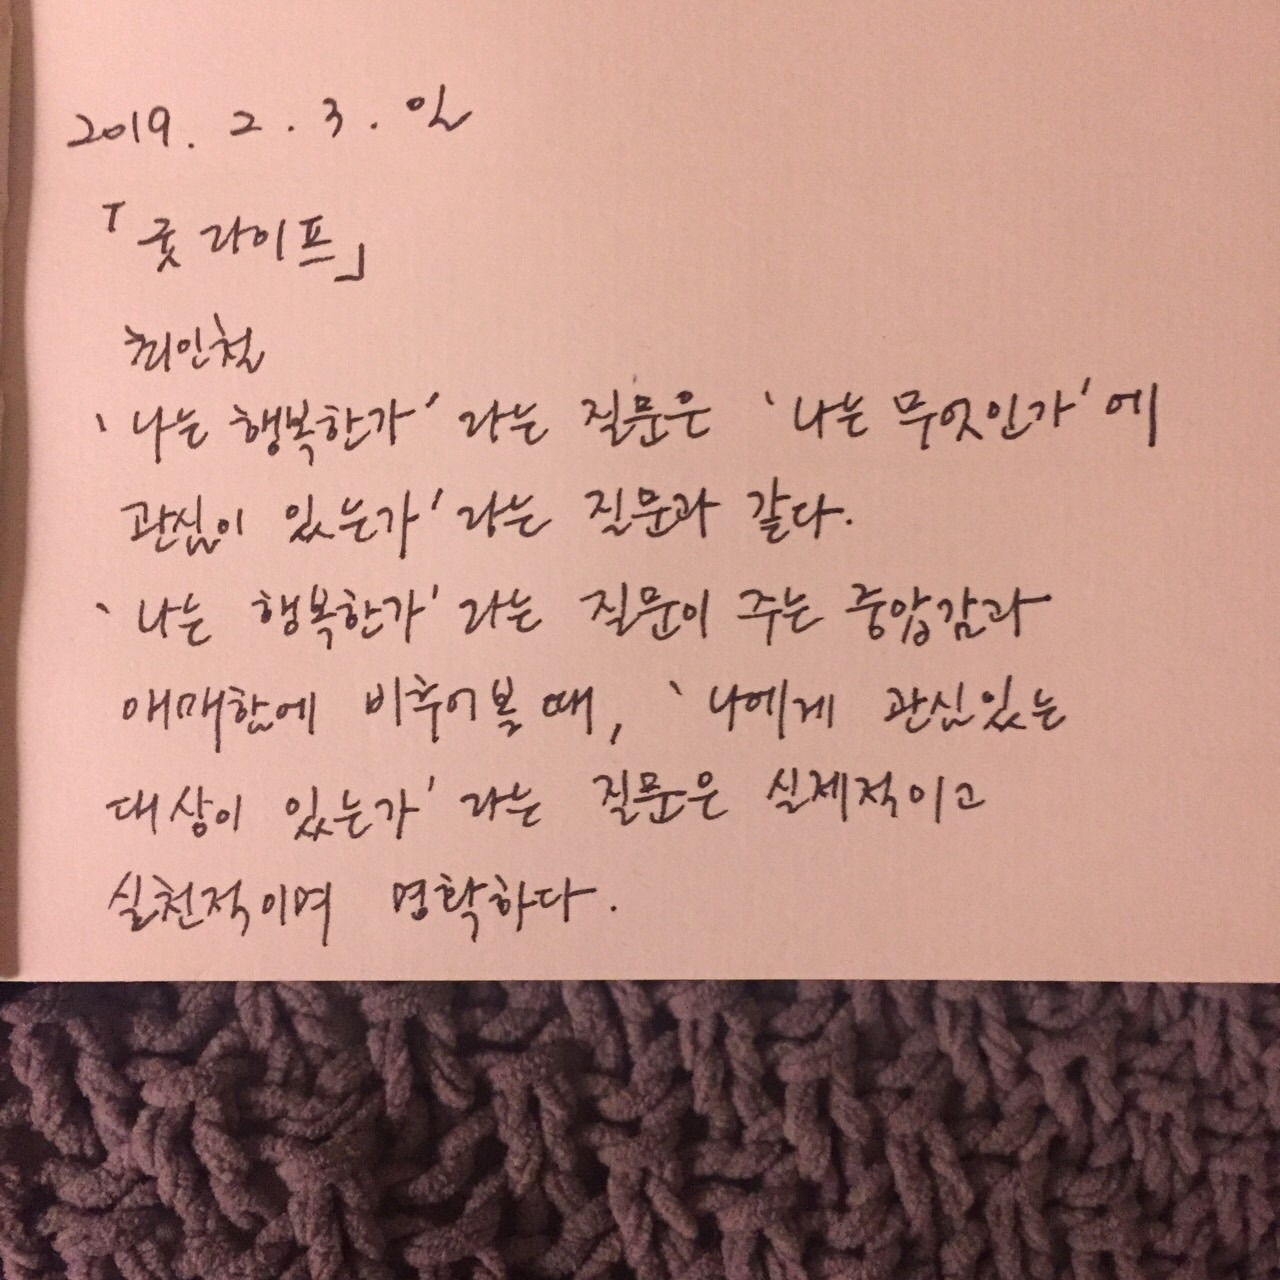 2019. 2. 3. 일
「굿 라이프」
최인철
'나는 행복한가'라는 질문은 '나는 무엇인가'에
관심이 있는가'라는 질문과 같다.
'나는 행복한가'라는 질문이 주는 중압감과
애매함에 비추어볼 때, '나에게 관심있는
대상이 있는가'라는 질문은 실제적이고
실천적이며 명확하다.